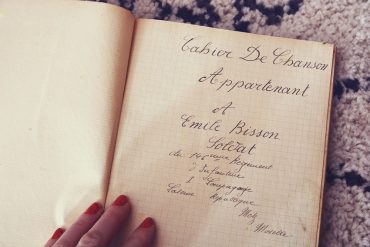 Cahier De Chanson
Appartenant
A
Emile Bisson
Soldat
du 146 eme Régiment
d'Infanterie
Compagnie
Caserne
Metz
Moselle